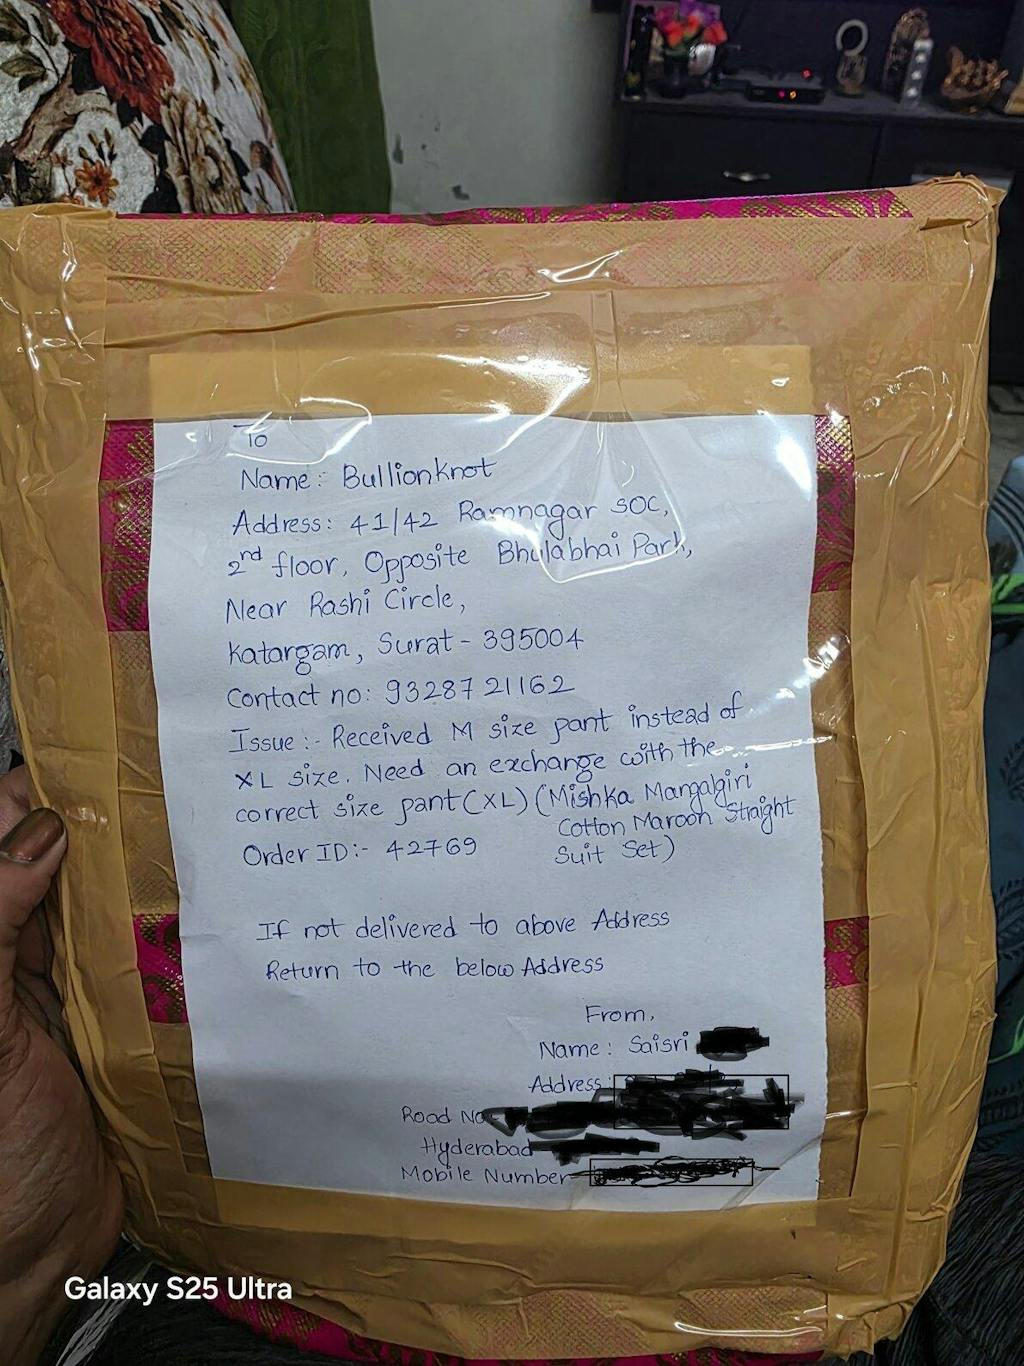 To
Name: Bullionknot
Address: 41/42 Ramnagar SOC,
2nd floor, Opposite Bhulabhai Park,
Near Rashi Circle,
Katargam, Surat - 395004
Contact no: 9328721162
Issue :- Received M size pant instead of
XL size. Need an exchange with the
correct size pant (XL) (Mishka Mangalgiri
Cotton Maroon Straight
Order ID:- 42769 Suit Set)
If not delivered to above Address
Return to the below Address
From,
Name: Saisri
Address:
Road No
Hyderabad
Mobile Number
Galaxy S25 Ultra